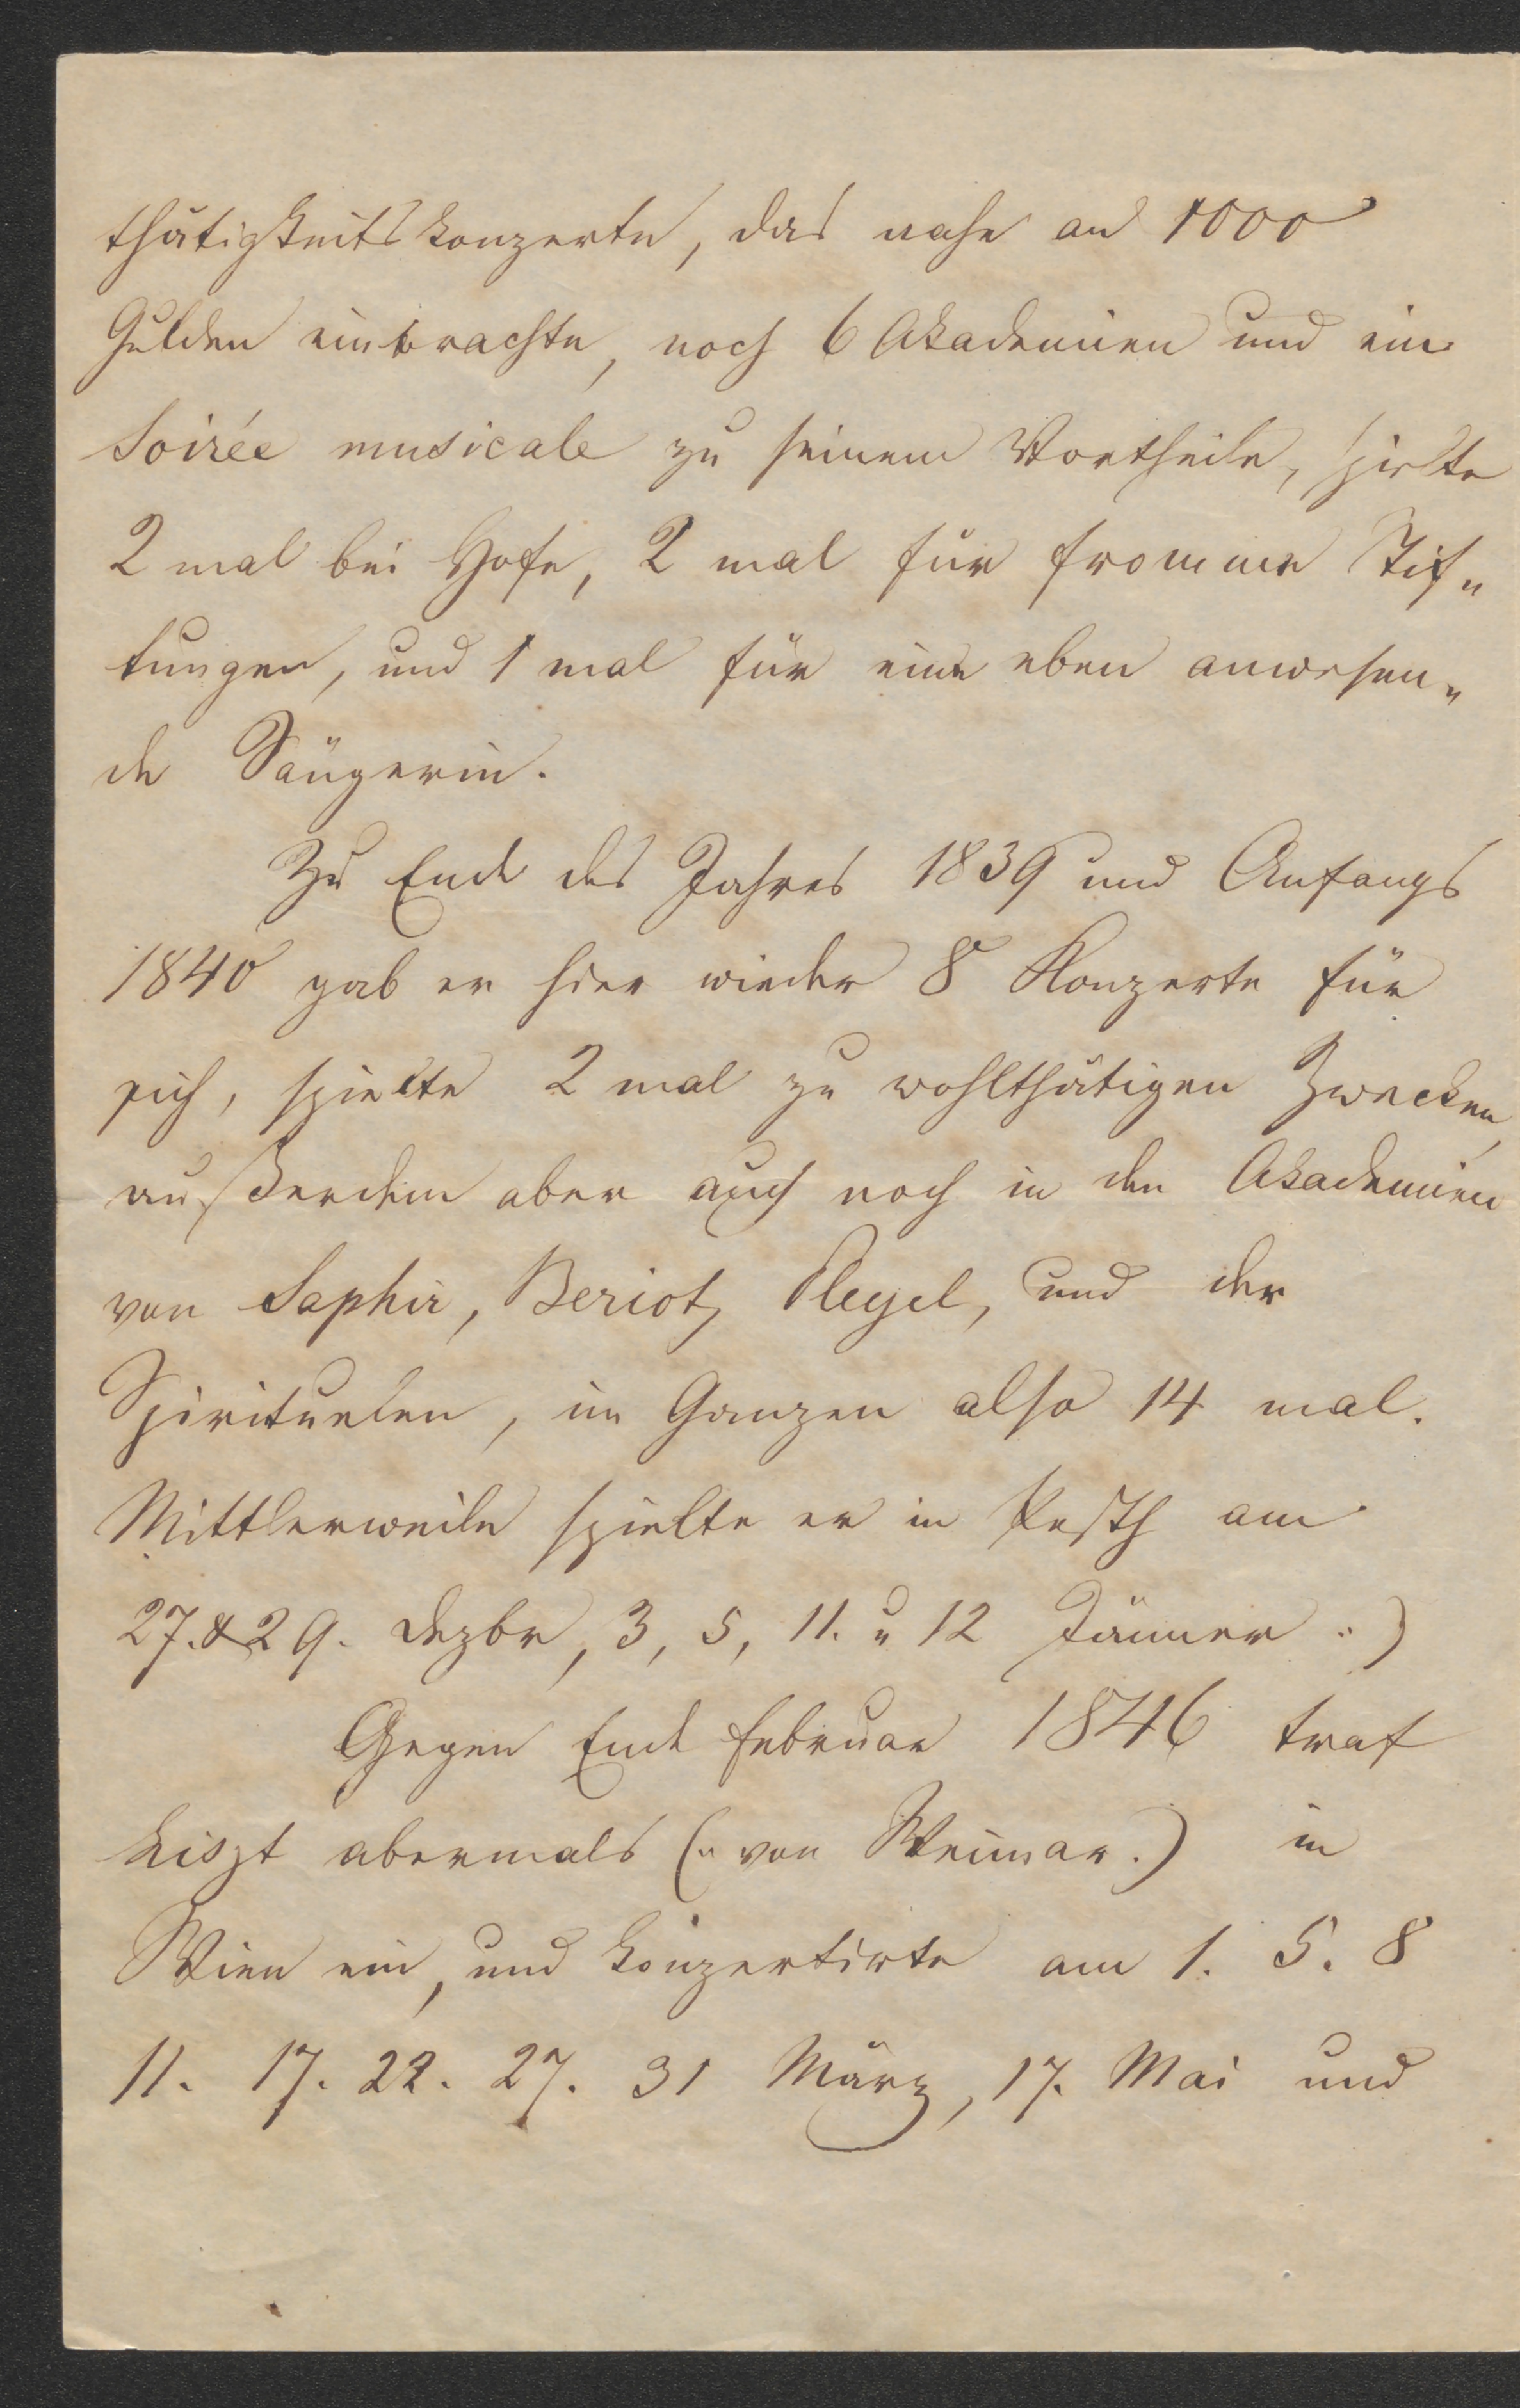 thätigkeitskonzerte, das nahe an 1000
Gulden einbrachte, noch 6 Akademien und ein
Soirée musicale zu seinem Vortheile, spielte
2 mal bei Hofe, 2 mal für fromme Stif„
tungen, und 1 mal für eine eben anwesen„
de Sängerin.
Zu Ende des Jahres 1839 und Anfangs
1840 gab er hier wieder 8 Konzerte für
sich, spielte 2 mal zu wohlthätigen Zwecken,
außerdem aber auch noch in den Akademien
von Saphir, Beriot, Pleyel, und der
Spirituelen, im Ganzen also 14 mal.
Mittlerweile spielte er in Pesth am
27. & 29. Dezbr, 3, 5, 11. u 12 Jänner :)
Gegen Ende Februar 1846 traf
Liszt abermals (: von Weimar.) in
Wien ein, und konzertirte am 1. 5. 8
11. 17. 22. 27. 31 März, 17. Mai und